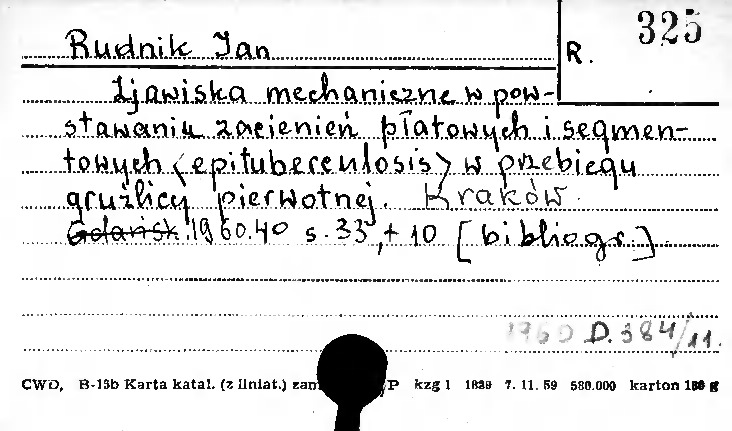 325
Rudnik Jan
R.
Zjawiska mechaniczne w pow-
stawaniu zacienień płatowych i segmen-
towych (epituberculosis) w przebiegu
gruźlicy pierwotnej. Kraków.
Gdańsk 1960.4° s. 33, + 10 [bibliogr.]
1960 D.384/11.
CWD, B-15b Karta katal. (z liniat.) zam P kzg 1 1839 7. 11. 59 580.000 karton g